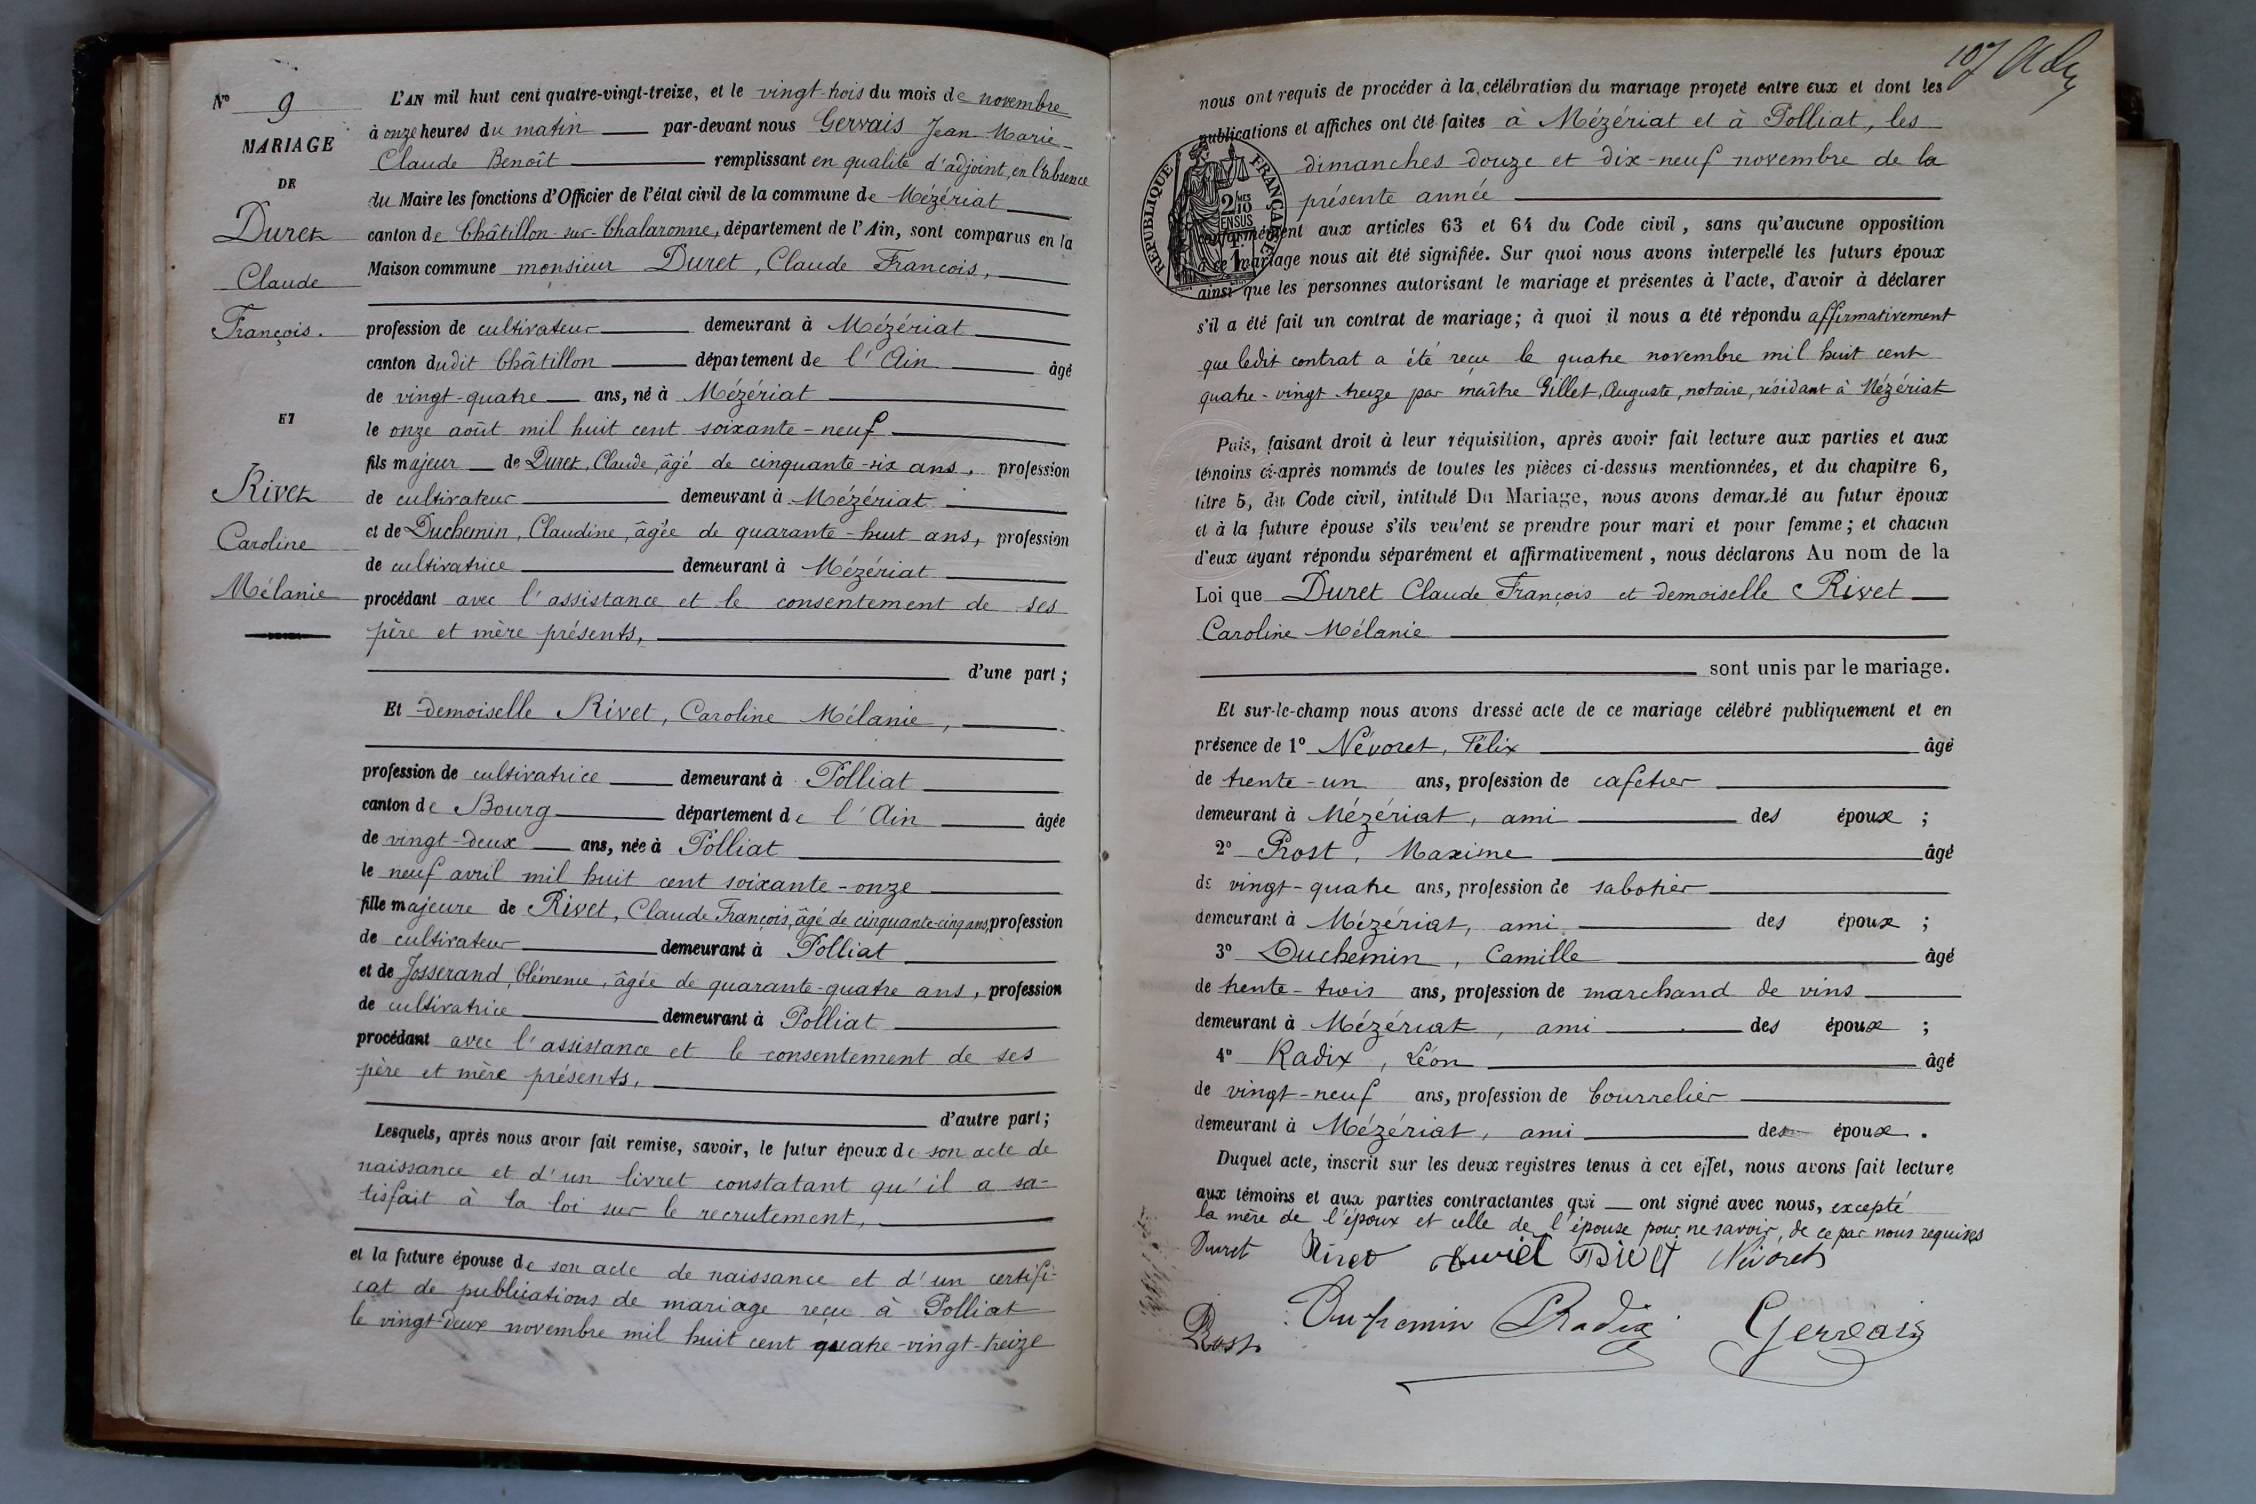 N° 9
MARIAGE
DE
Duret
Claude
François.
ET
Rivet
Caroline
Mélanie
L'AN mil huit cent quatre-vingt-treize, et le vingt-trois du mois de novembre
à onze heures du matin par-devant nous Gervais Jean Marie
Claude Benoît remplissant en qualité d'adjoint, en l'absence
du Maire les fonctions d'Officier de l'état civil de la commune de Mézériat
canton de Châtillon-sur-Chalaronne, département de l'Ain, sont comparus en la
Maison commune monsieur Duret, Claude François,
profession de cultivateur demeurant à Mézériat
canton dudit Châtillon département de l'Ain âgé
de vingt-quatre ans, né à Mézériat
le onze août mil huit cent soixante-neuf
fils majeur de Duret, Claude, âgé de cinquante-six ans, profession
de cultivateur demeurant à Mézériat
et de Duchemin, Claudine, âgée de quarante-huit ans, profession
de cultivatrice demeurant à Mézériat
procédant avec l'assistance et le consentement de ses
père et mère présents,
d'une part;
Et demoiselle Rivet, Caroline Mélanie,
profession de cultivatrice demeurant à Polliat
canton de Bourg département de l'Ain âgée
de vingt-deux ans, née à Polliat
le neuf avril mil huit cent soixante-onze
fille majeure de Rivet, Claude François, âgé de cinquante-cinq ans, profession
de cultivateur demeurant à Polliat
et de Josserand, Clémence, âgée de quarante-quatre ans, profession
de cultivatrice demeurant à Polliat
procédant avec l'assistance et le consentement de ses
père et mère présents,
d'autre part;
Lesquels, après nous avoir fait remise, savoir, le futur époux de son acte de
naissance et d'un livret constatant qu'il a sa-
tisfait à la loi sur le recrutement,
et la future épouse de son acte de naissance et d'un certifi-
cat de publications de mariage reçu à Polliat
le vingt-deux novembre mil huit cent quatre-vingt-treize
107
nous ont requis de procéder à la célébration du mariage projeté entre eux et dont les
publications et affiches ont été faites à Mézériat et à Polliat, les
dimanches douze et dix-neuf novembre de la
présente année
RÉPUBLIQUE FRANÇAISE
2/10 MES
EN SUS
conformément aux articles 63 et 64 du Code civil, sans qu'aucune opposition
à ce mariage nous ait été signifiée. Sur quoi nous avons interpellé les futurs époux
ainsi que les personnes autorisant le mariage et présentes à l'acte, d'avoir à déclarer
s'il a été fait un contrat de mariage; à quoi il nous a été répondu affirmativement
que ledit contrat a été reçu le quatre novembre mil huit cent
quatre-vingt treize par maître Gillet, Auguste, notaire, résidant à Mézériat
Puis, faisant droit à leur réquisition, après avoir fait lecture aux parties et aux
témoins ci-après nommés de toutes les pièces ci-dessus mentionnées, et du chapitre 6,
titre 5, du Code civil, intitulé Du Mariage, nous avons demandé au futur époux
et à la future épouse s'ils veulent se prendre pour mari et pour femme; et chacun
d'eux ayant répondu séparément et affirmativement, nous déclarons Au nom de la
Loi que Duret Claude François et demoiselle Rivet
Caroline Mélanie
sont unis par le mariage.
Et sur-le-champ nous avons dressé acte de ce mariage célébré publiquement et en
présence de 1° Névoret, Félix âgé
de trente-un ans, profession de cafetier
demeurant à Mézériat, ami des époux ;
2° Prost, Maxime âgé
de vingt-quatre ans, profession de sabotier
demeurant à Mézériat, ami des époux ;
3° Duchemin, Camille âgé
de trente-trois ans, profession de marchand de vins
demeurant à Mézériat, ami des époux ;
4° Radix, Léon âgé
de vingt-neuf ans, profession de bourrelier
demeurant à Mézériat, ami des époux .
Duquel acte, inscrit sur les deux registres tenus à cet effet, nous avons fait lecture
aux témoins et aux parties contractantes qui ont signé avec nous, excepté
la mère de l'époux et celle de l'épouse pour ne savoir, de ce par nous requises
Duret Rivet Duret Rivet Névoret
Prost Duchemin Radix Gervais